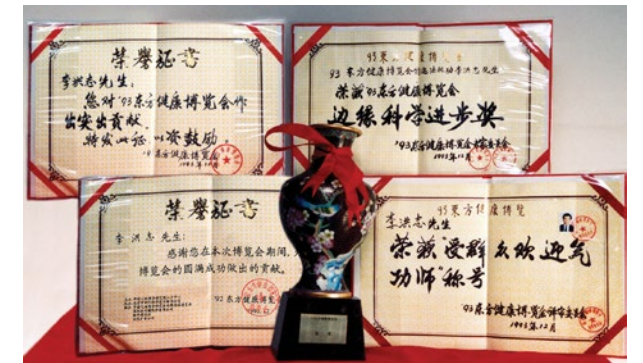 荣誉证书
李洪志先生:
您对'93东方健康博览会作
出突出贡献。
特发此证,以资鼓励。
'93东方健康博览会
1993年12月
93东方健康博览会
93东方健康博览会 李洪志先生:
荣获'93东方健康博览会
边缘科学进步奖
'93东方健康博览会评审委员会
1993年12月
荣誉证书
李洪志先生:
感谢您在本次博览会期间,
博览会的圆满成功做出的贡献。
'92东方健康博览会
93东方健康博览
李洪志先生
荣获“受群众欢迎气
功师”称号
'93东方健康博览会评审委员会
1993年12月